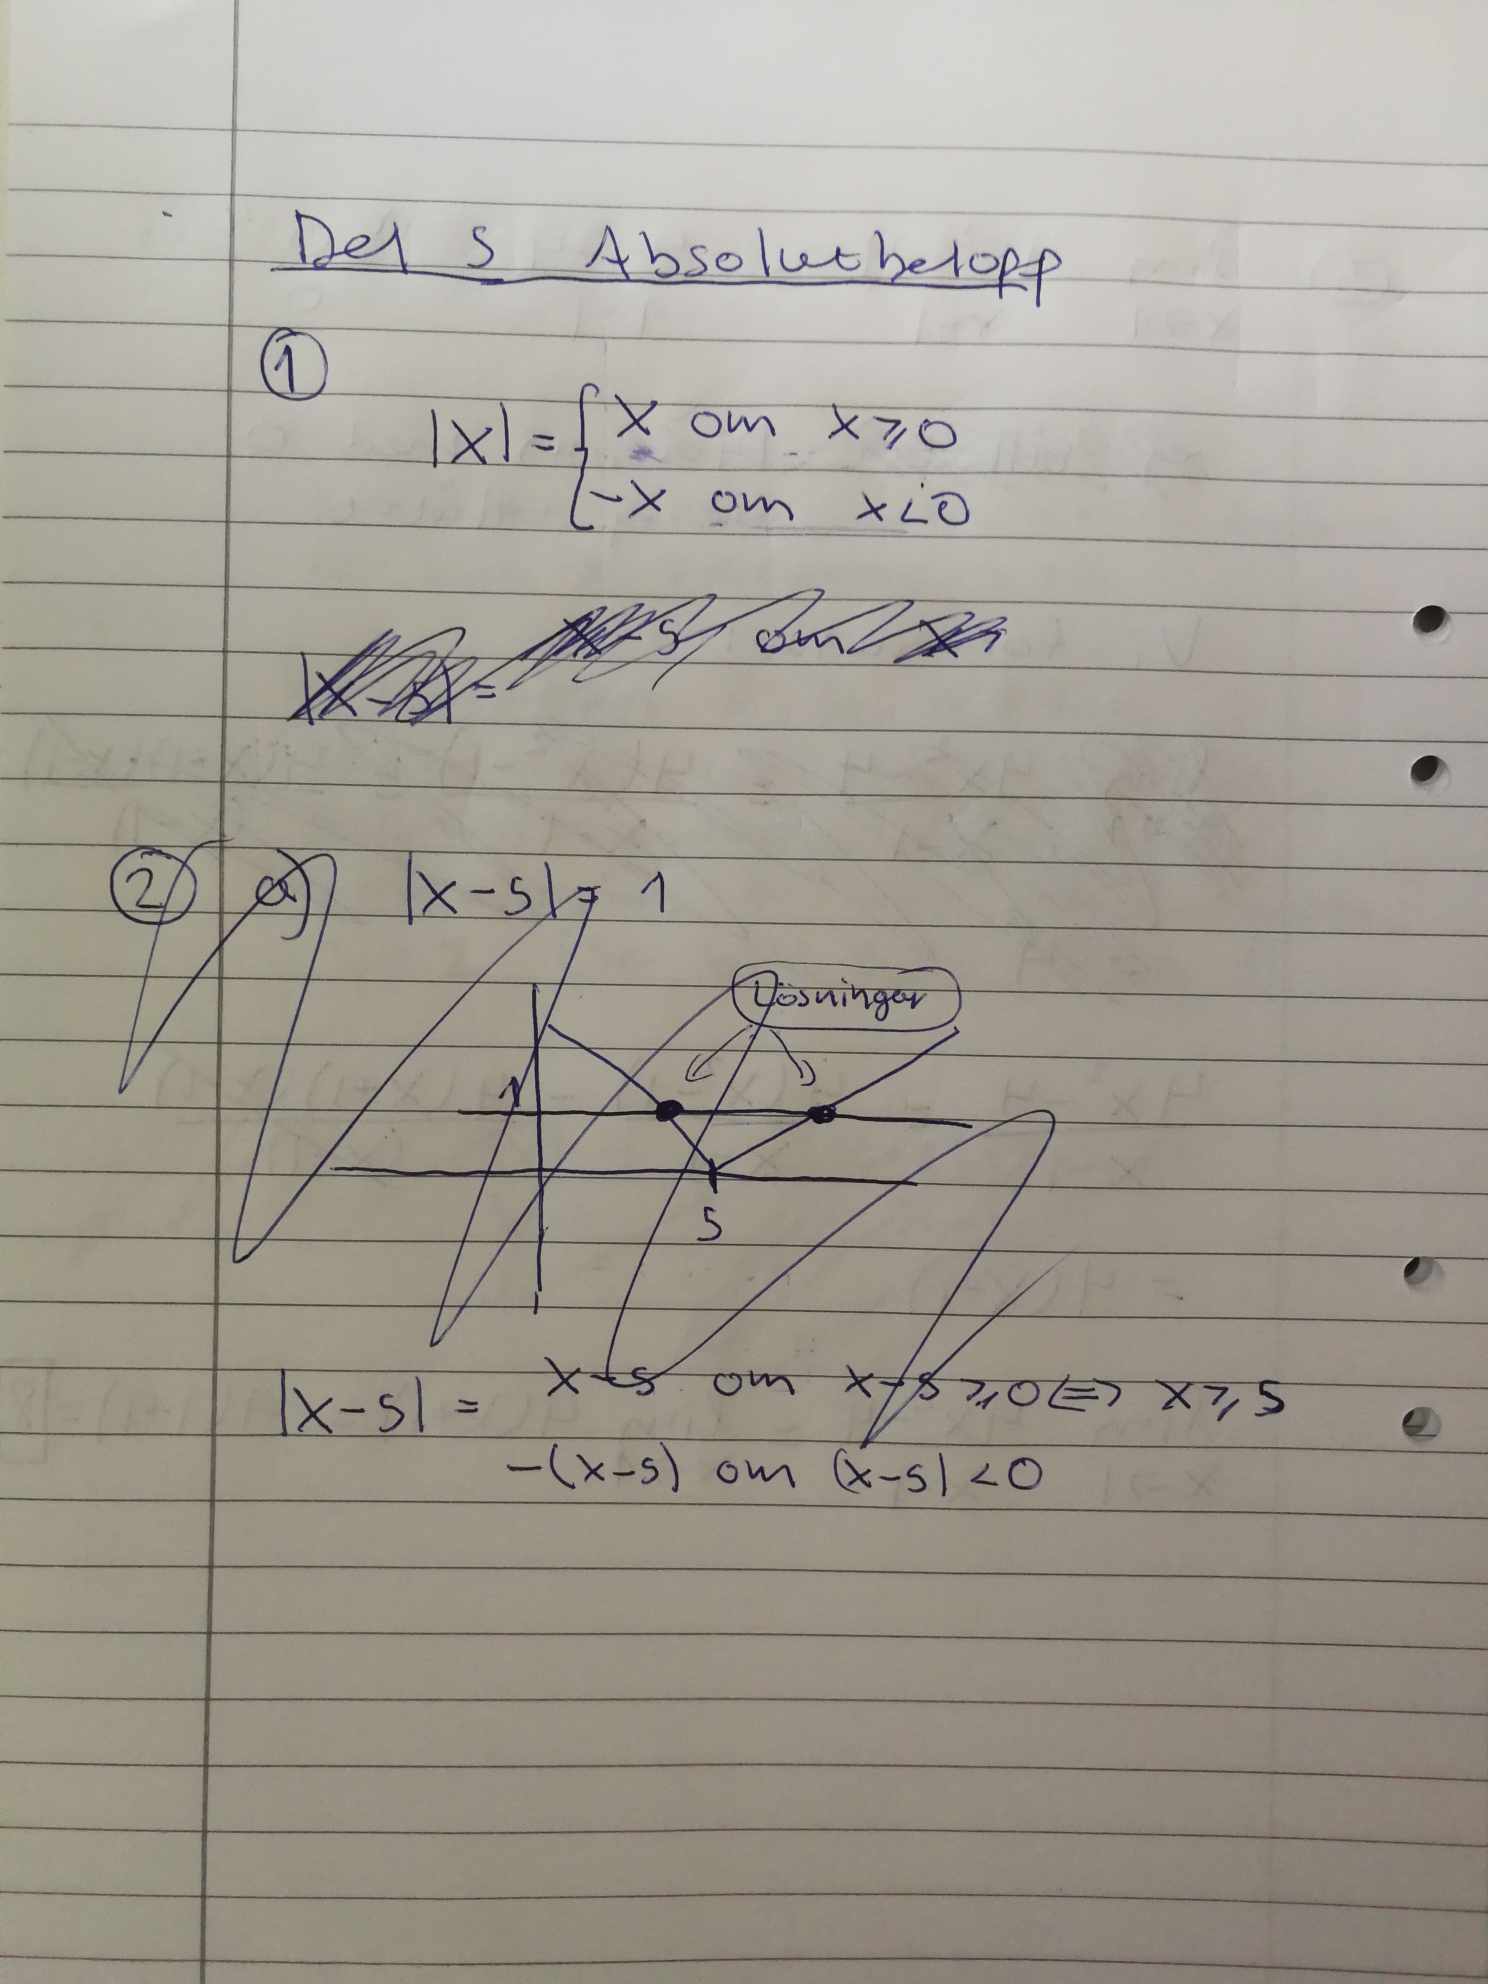 Del 5 Absolutbelopp
①
|x| = { x om x ≥ 0
-x om x < 0
|x-5| = x-5 om x
② a) |x-5| = 1
Lösningar
1
5
|x-5| = x-5 om x-5 ≥ 0 ⇔ x ≥ 5
-(x-5) om (x-5) < 0